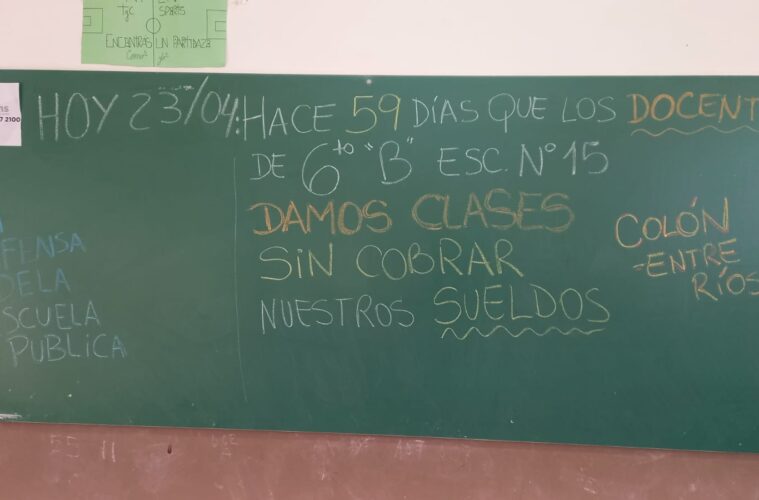 SPORTS
ENCONTRAS UN PARTIDAZO
2100
HOY 23/04: HACE 59 DÍAS QUE LOS DOCENT
DE 6to "B" ESC. N°15
DAMOS CLASES
SIN COBRAR
NUESTROS SUELDOS
COLÓN
-ENTRE
RÍOS
FENSA
DE LA
SCUELA
PUBLICA